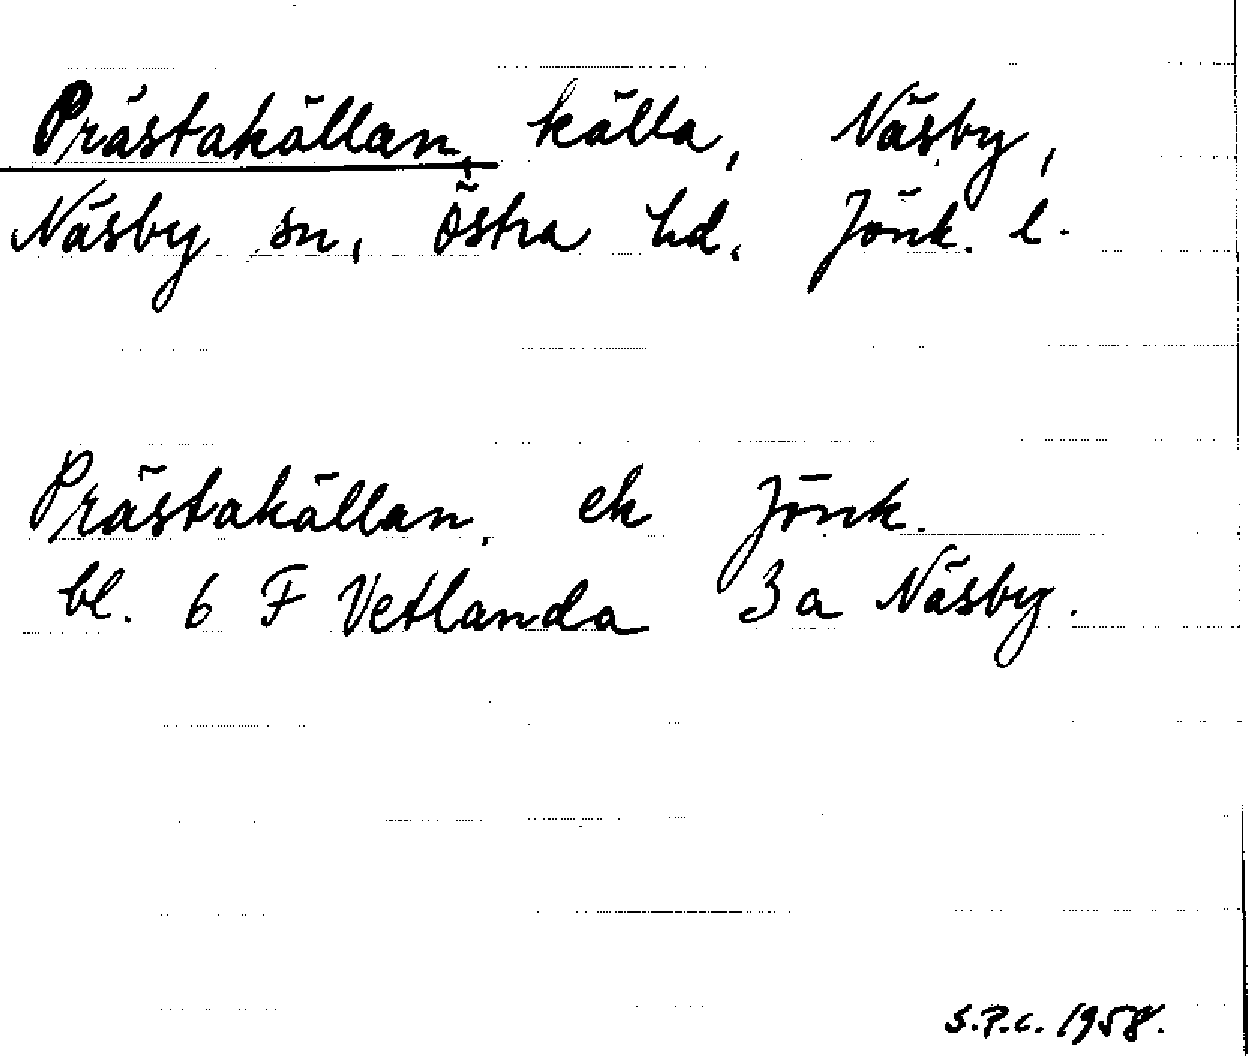 Prästakällan, källa, Näsby,
Näsby sn, Östra hd. Jönk. l.
Prästakällan, ek Jönk.
bl. 6 F Vetlanda 3a Näsby.
S.P.C. 1958.